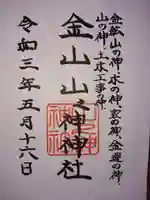 金鉱山の神、水の神、の神、金運の神、
山の神、土木工事の神、
金山山之神神社
令和三年五月十六日